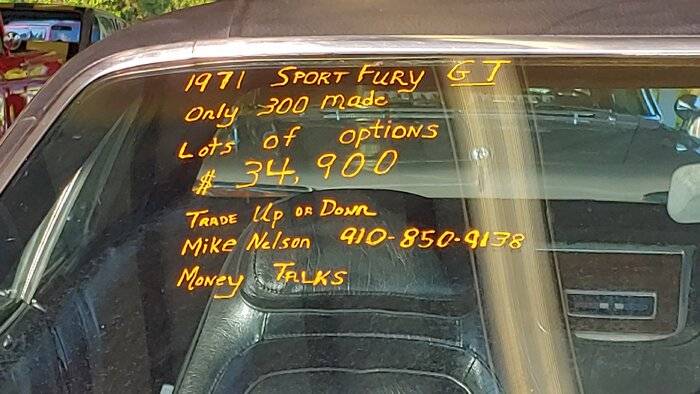 1971 SPORT FURY GT
Only 300 made
Lots of options
$ 34,900
TRADE Up OR DOWN
Mike Nelson 910-850-9138
Money TALKS